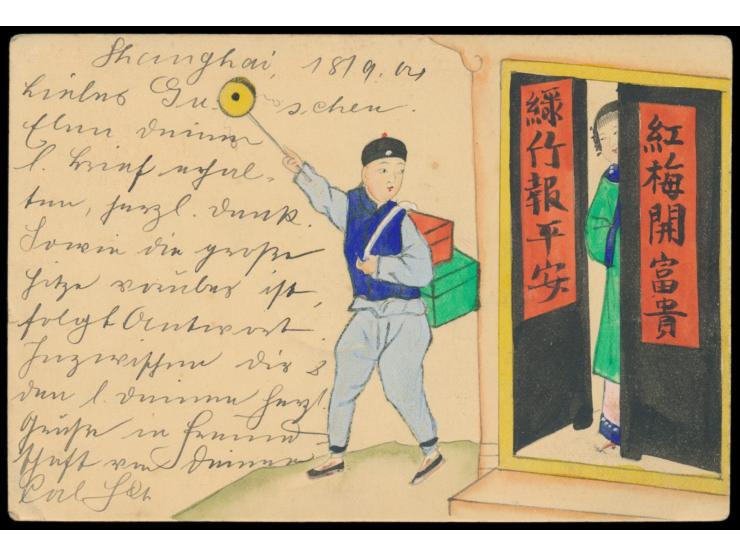 Shanghai, 18/9.04
Liebes Gu schen.
Eben deinen
l. Brief erhal-
ten, herzl. Dank.
Sowie die große
Hitze vorüber ist,
folgt Antwort.
Inzwischen dir &
den l. deinen herzl.
Grüße in Freund-
schaft von deinem
紅梅開富貴
綠竹報平安